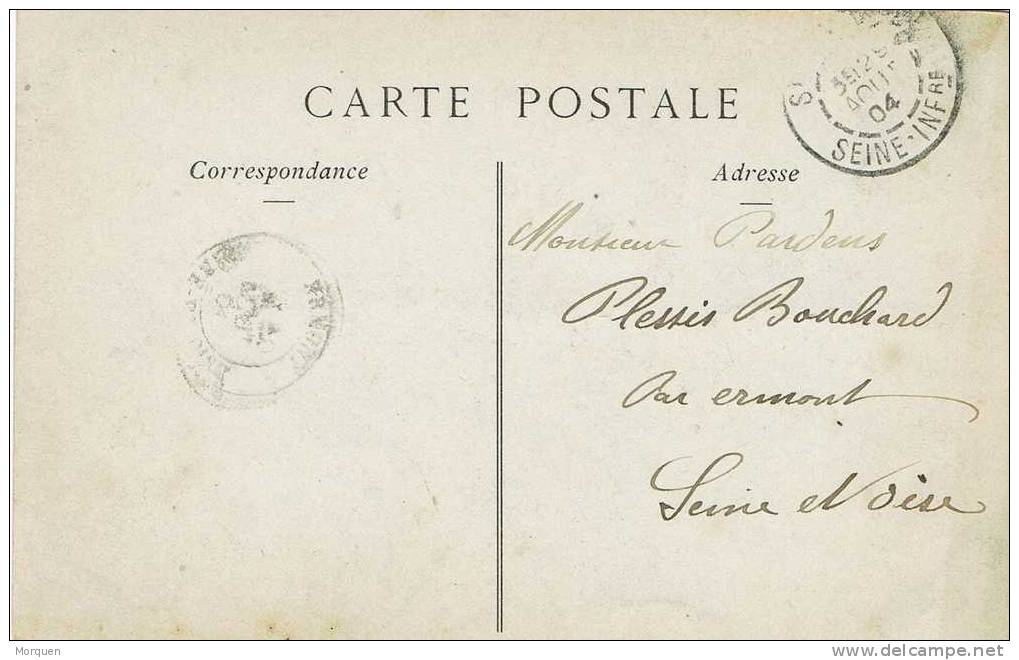 CARTE POSTALE
Correspondance
Adresse
AOUT
04
SEINE-INFRE
Monsieur Pardens
Plessis Bouchard
Par ermont
Seine et Oise
Morquen
www.delcampe.net